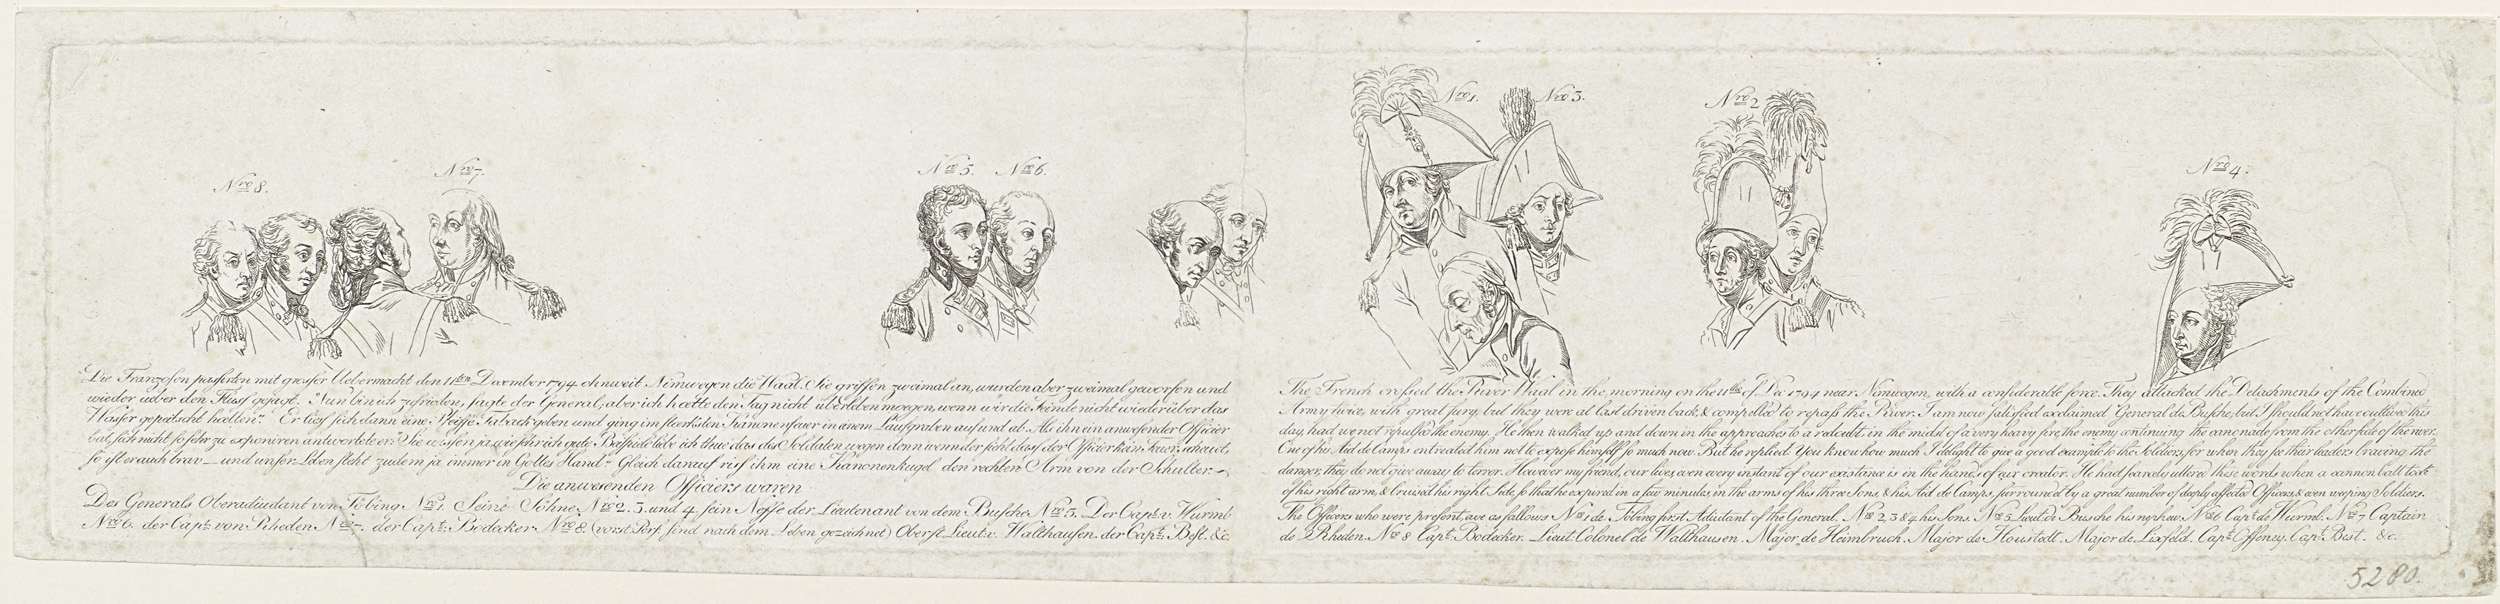 Nro 8.
Nro 7.
Nro 5. Nro 6.
Nro 1.
Nro 3.
Nro 2
Nro 4.
Die Franzosen passirten mit grosser Uebermacht den 11ten December 1794 ohnweit Nimwegen die Waal. Sie griffen zweimal an, wurden aber zweimal geworfen und
wieder über den Fluss gejagt. "Nun bin ich zufrieden, sagte der General, aber ich hætte den Tag nicht überleben moegen, wenn wir die Feinde nicht wieder über das
Wasser gepeitscht hætten." Er liess sich dann eine Pfeiffe Taback geben und ging im stærksten Kanonenfeuer in einem Laufgraben auf und ab. Als ihn ein anwesender Officier
bat, sich nicht so sehr zu exponiren antwortete er: Sie wissen ja wie sehr ich gute Beispiele liebe ich thue das des Soldaten wegen denn wenn der sieht dass der Officier kein Feuer scheuet,
so ist er auch brav — und unser Leben steht zudem ja immer in Gottes Hand." Gleich darauf riss ihm eine Kanonenkugel den rechten Arm von der Schulter.
Die anwesenden Officiers waren
Des Generals Oberadjudant von Töbing Nro 1. Seine Söhne Nro 2. 3. und 4. sein Neffe der Lieutenant von dem Busche Nro 5. Der Capt. v. Wurmb
Nro 6. der Capt. von Rheden Nro 7. der Capt. Bodecker Nro 8. (vorst. Pers. sind nach dem Leben gezeichnet) Oberst. Lieut. v. Walthausen. der Capt. Best. &c.
The French crossed the River Waal in the morning on the 11th of Dec 1794 near Nimwegen, with a considerable force. They attacked the Detachments of the Combined
Army twice, with great fury, but they were at last driven back, & compelled to repass the River. I am now satisfied exclaimed General de Bushe, but I should not have outlived this
day, had we not repulsed the enemy. He then walked up and down in the approaches to a redoubt, in the midst of a very heavy fire, the enemy continuing the canonade from the other side of the river.
One of his Aid de Camps entreated him not to expose himself so much now. But he replied You know how much I delight to give a good example to the Soldiers, for when they see their leaders braving the
danger, they do not give away to terror. However my friend, our lives, even every instant of our existance is in the hands of our creator. He had scarcely uttered these words when a cannon ball took
of his right arm, & bruised his right Side, so that he expired in a few minutes, in the arms of his three Sons, & his Aid de Camps, surround by a great number of deeply affected Officers, & even weeping Soldiers.
The Officers who were present, are as fallows Nro 1 de Töbing first Adjutant of the General. Nro 2, 3 & 4 his Sons. Nro 5 Lieut. v. Busche his nephew. Nro 6 Capt. de Wurmb. Nro 7 Captain
de Rheden. Nro 8 Capt. Bodecker. Lieut. Colonel de Walthausen. Major de Heimbruch. Major de Houstedt. Major de Linsfeld. Capt. Offeney. Capt. Best. &c.
5280.